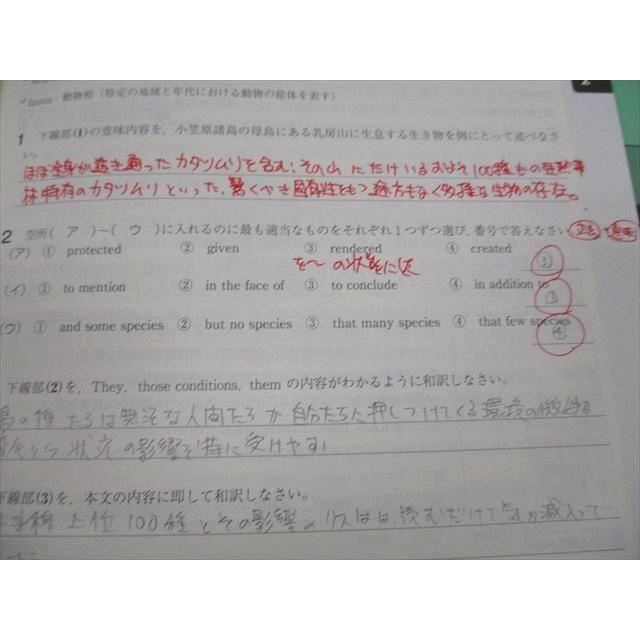 fauna：動物相（特定の地域と年代における動物の総体を表す）
1 下線部(1)の意味内容を，小笠原諸島の母島にある乳房山に生息する生き物を例にとって述べなさ
い。
ほぼ全身が透き通ったカタツムリを含む、その山にだけいるおよそ100種もの
林特有のカタツムリといった、驚くべき固有性をもつ途方もなく多様な生物の存在。
2 空所（ア）～（ウ）に入れるのに最も適当なものをそれぞれ1つずつ選び，番号で答えなさい
(ア) ① protected ② given ③ rendered ④ created
③
を～の状態にする
(イ) ① to mention ② in the face of ③ to conclude ④ in addition to
①
(ウ) ① and some species ② but no species ③ that many species ④ that few species
④
下線部(2)を，They, those conditions, them の内容がわかるように和訳しなさい。
島の種たちは無茶な人間たちが自分たちに押しつけてくる環境の
状況の影響を特に受けやすい
下線部(3)を，本文の内容に即して和訳しなさい。
種上位100種とその影響のリストは、読むだけで気が滅入って